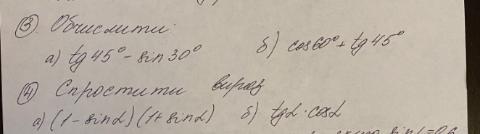 ③. Обчислити.
а) tg 45° - sin 30° б) cos 60° + tg 45°
④ Спростити вираз
а) (1 - sin α) (1 + sin α) б) tg α · cos α